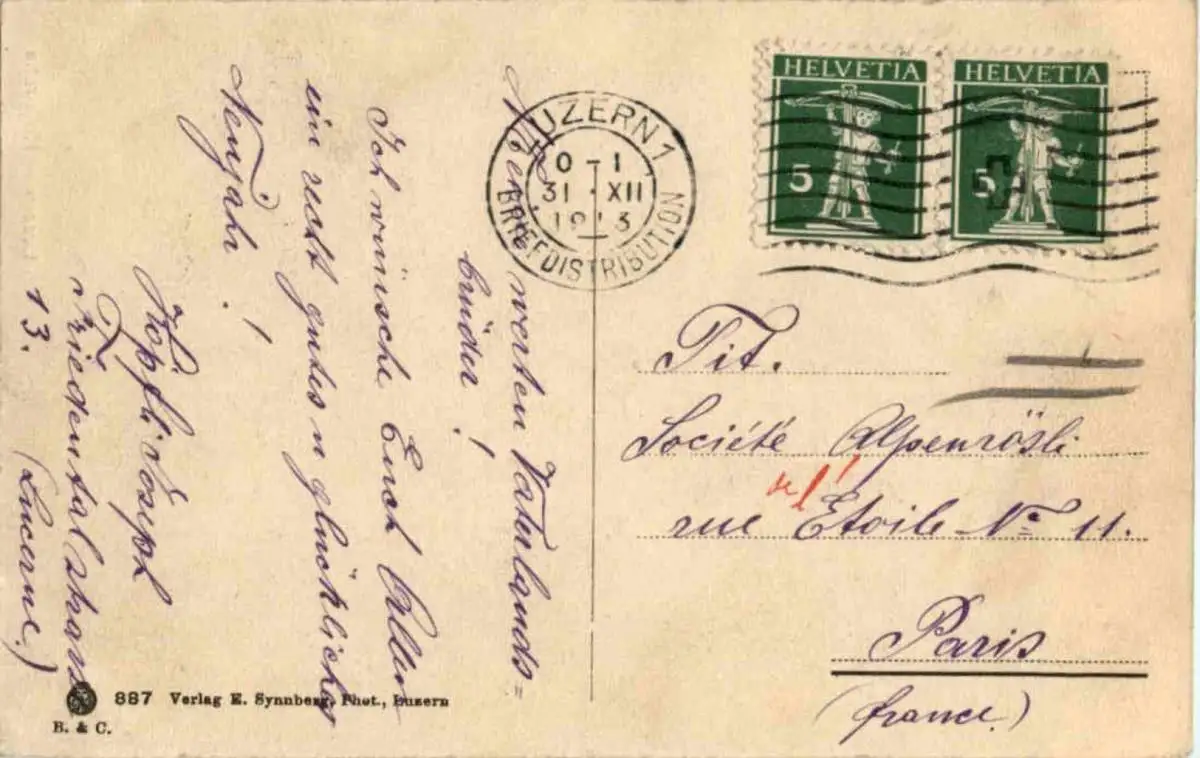 HELVETIA
5
HELVETIA
5
LUZERN 1
0-1
31 XII
BRIEFDISTRIBUTION
werten Vaterlands=
brüder!
Ich wünsche Euch Allen
ein recht gutes n glückliches
Neujahr!
Köpfli Joseph
Friedentalstrass
13.
(Lucerne.)
Tit.
Société Alpenrösli
rue l'Etoile No 11.
Paris
(france.)
887 Verlag E. Synnberg, Phot., Luzern
B. & C.